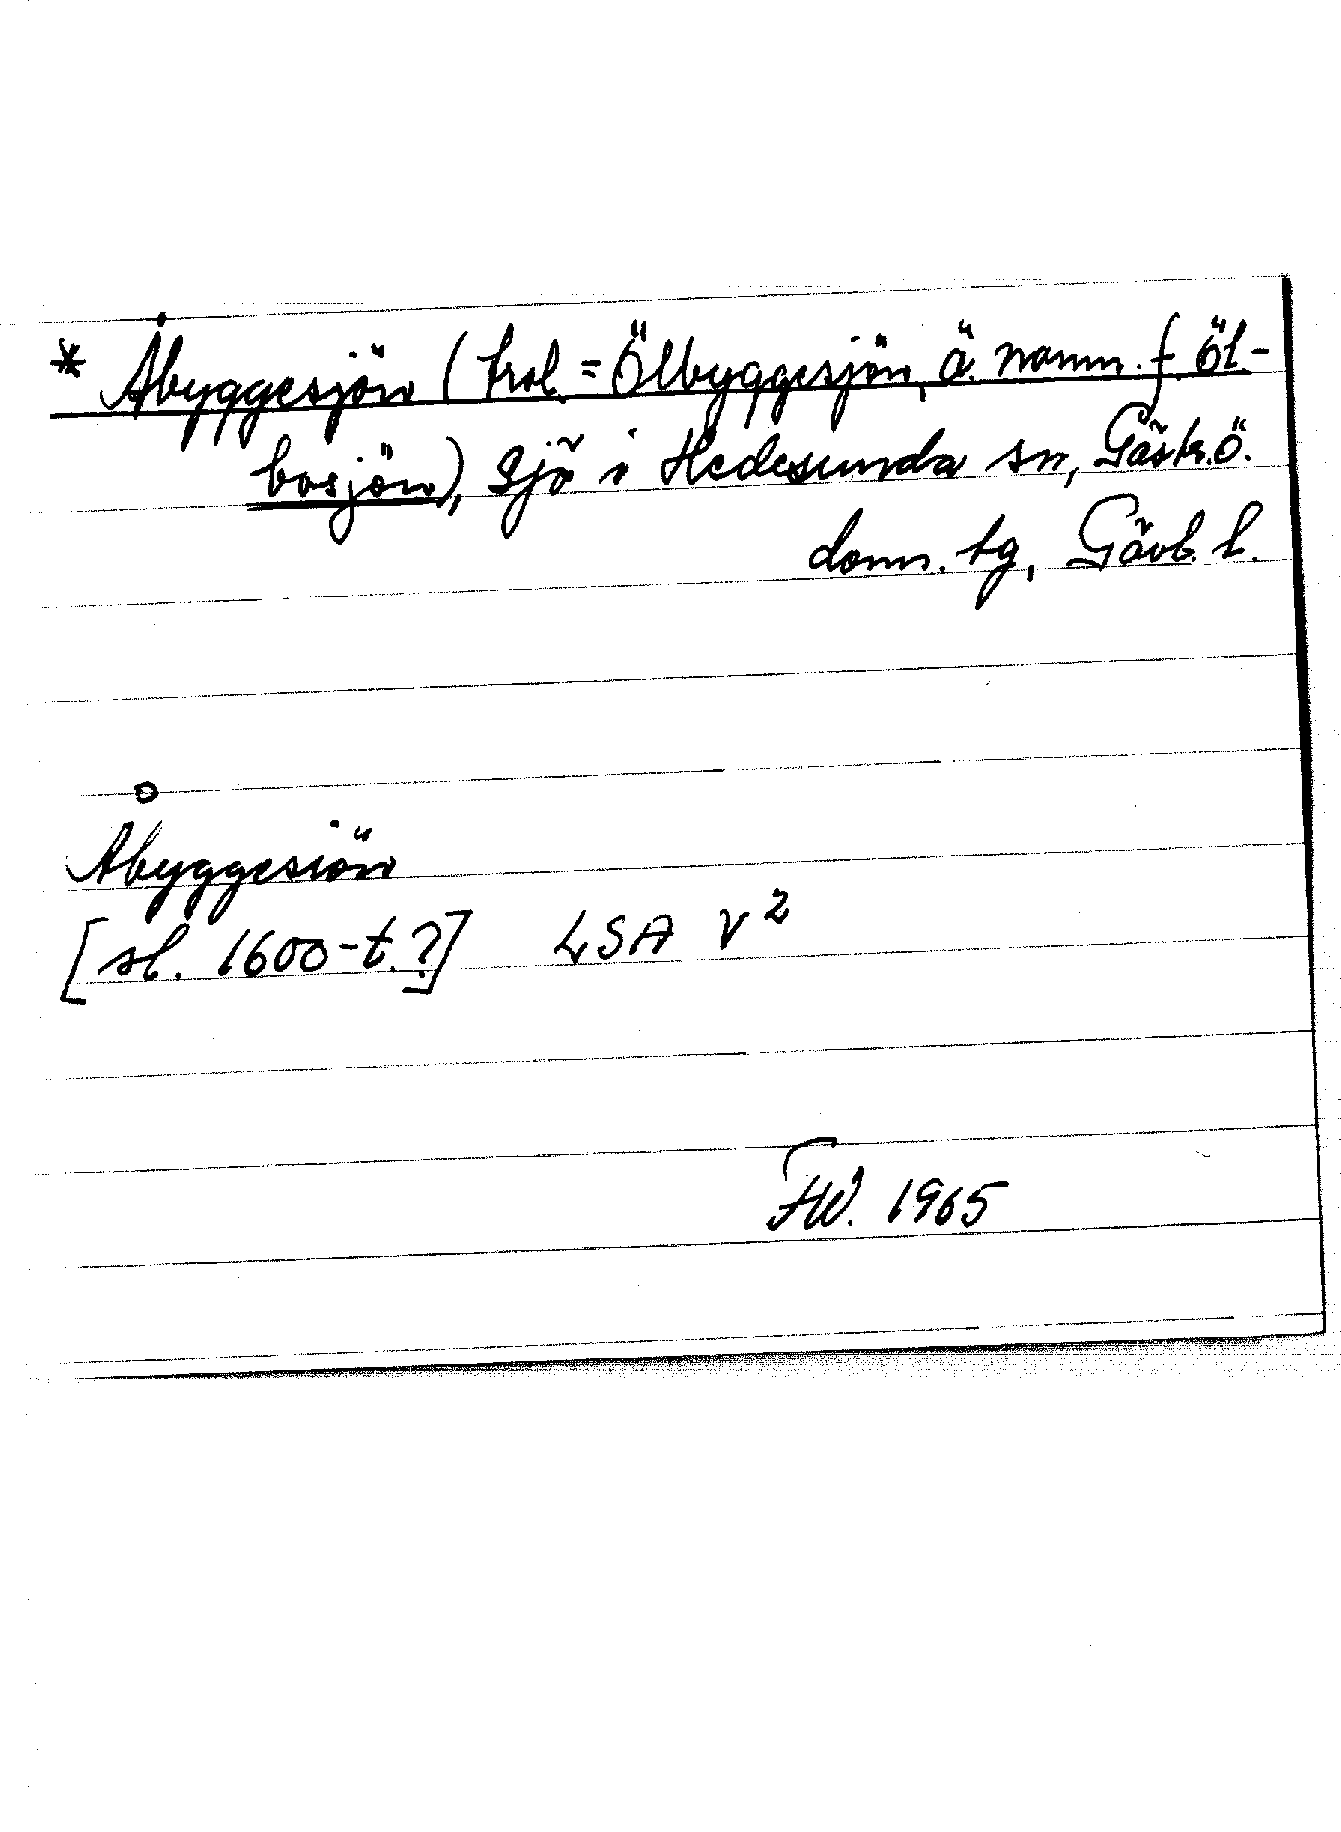 * Åbyggesjön (trol. = Ölbyggesjön, ä. namn f. Öl-
bosjön), sjö i Hedesunda sn, Gästr. ö.
doms. tg, Gävl. l.
Åbyggesiön
[sl. 1600-t.?] LSA V²
FW. 1965